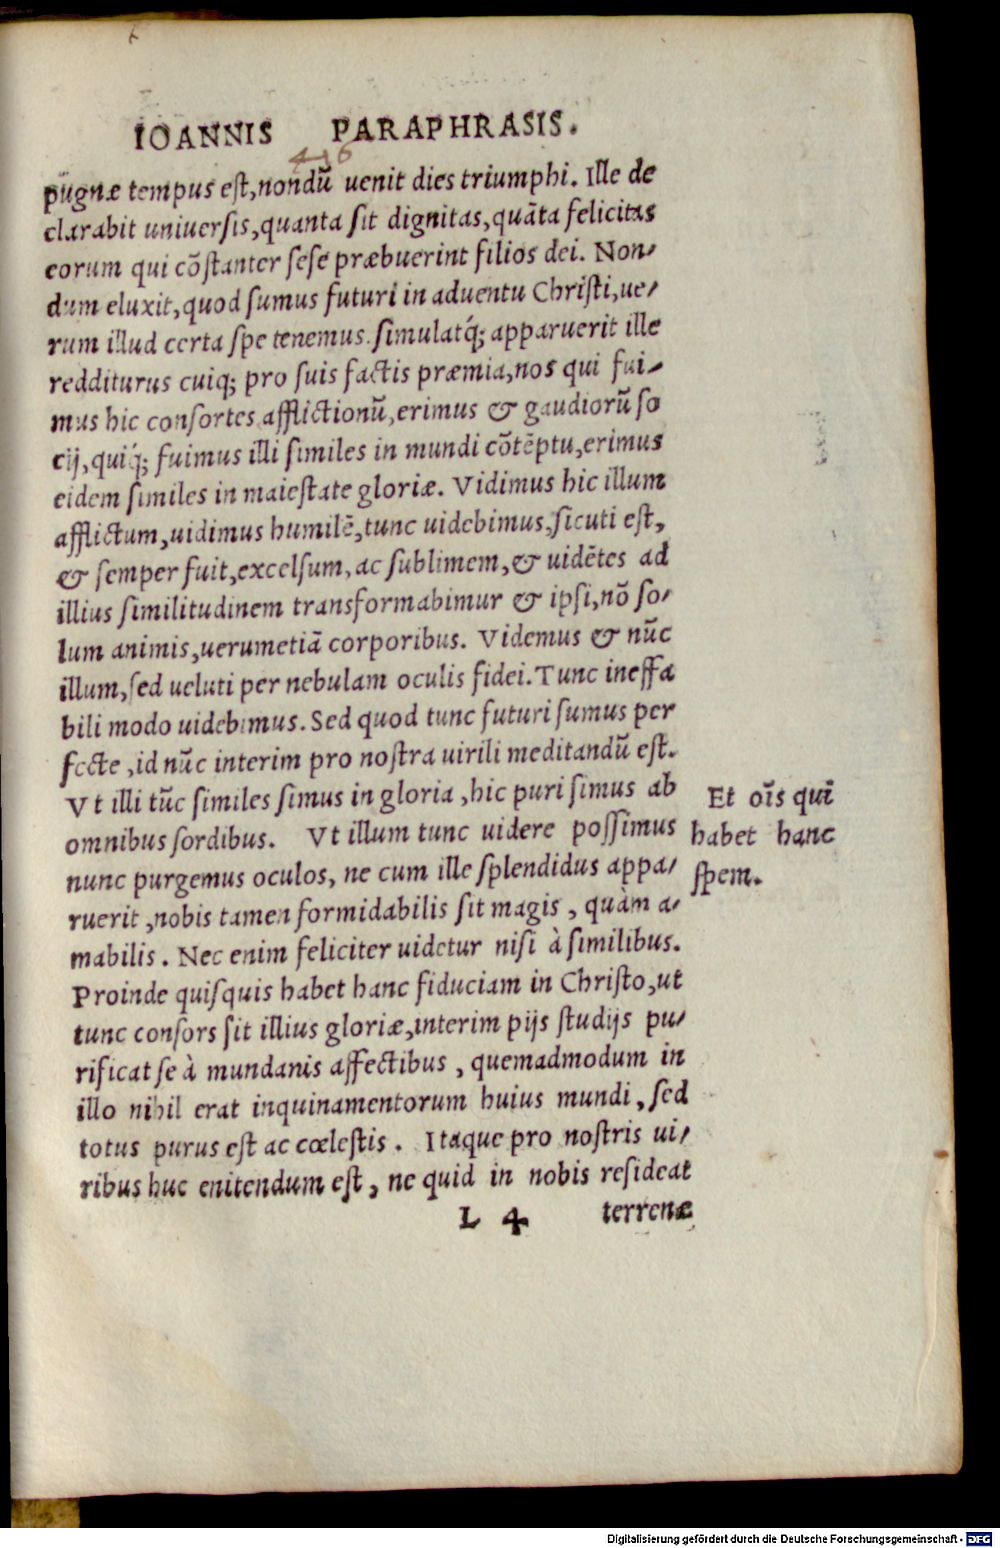 IOANNIS PARAPHRASIS.
416
pugnæ tempus est, nondū uenit dies triumphi. Ille de
clarabit uniuersis, quanta sit dignitas, quāta felicitas
eorum qui cōstanter sese præbuerint filios dei. Non-
dum eluxit, quod sumus futuri in aduentu Christi, ue-
rum illud certa spe tenemus. simulatq́; apparuerit ille
redditurus cuiq; pro suis factis præmia, nos qui fui-
mus hic consortes afflictionū, erimus & gaudiorū so
cij, quiq́; fuimus illi similes in mundi cōtēptu, erimus
eidem similes in maiestate gloriæ. Vidimus hic illum
afflictum, uidimus humilē, tunc uidebimus, sicuti est,
& semper fuit, excelsum, ac sublimem, & uidētes ad
illius similitudinem transformabimur & ipsi, nō so-
lum animis, uerumetiā corporibus. Videmus & nūc
illum, sed ueluti per nebulam oculis fidei. Tunc ineffa
bili modo uidebimus. Sed quod tunc futuri sumus per
fecte, id nūc interim pro nostra uirili meditandū est.
Vt illi tūc similes simus in gloria, hic puri simus ab
omnibus sordibus. Vt illum tunc uidere possimus
nunc purgemus oculos, ne cum ille splendidus appa-
ruerit, nobis tamen formidabilis sit magis, quàm a-
mabilis. Nec enim feliciter uidetur nisi à similibus.
Proinde quisquis habet hanc fiduciam in Christo, ut
tunc consors sit illius gloriæ, interim pijs studijs pu-
rificat se à mundanis affectibus, quemadmodum in
illo nihil erat inquinamentorum huius mundi, sed
totus purus est ac cœlestis. Itaque pro nostris ui-
ribus huc enitendum est, ne quid in nobis resideat
L 4 terrenæ
Et oīs qui
habet hanc
spem.
Digitalisierung gefördert durch die Deutsche Forschungsgemeinschaft - DFG